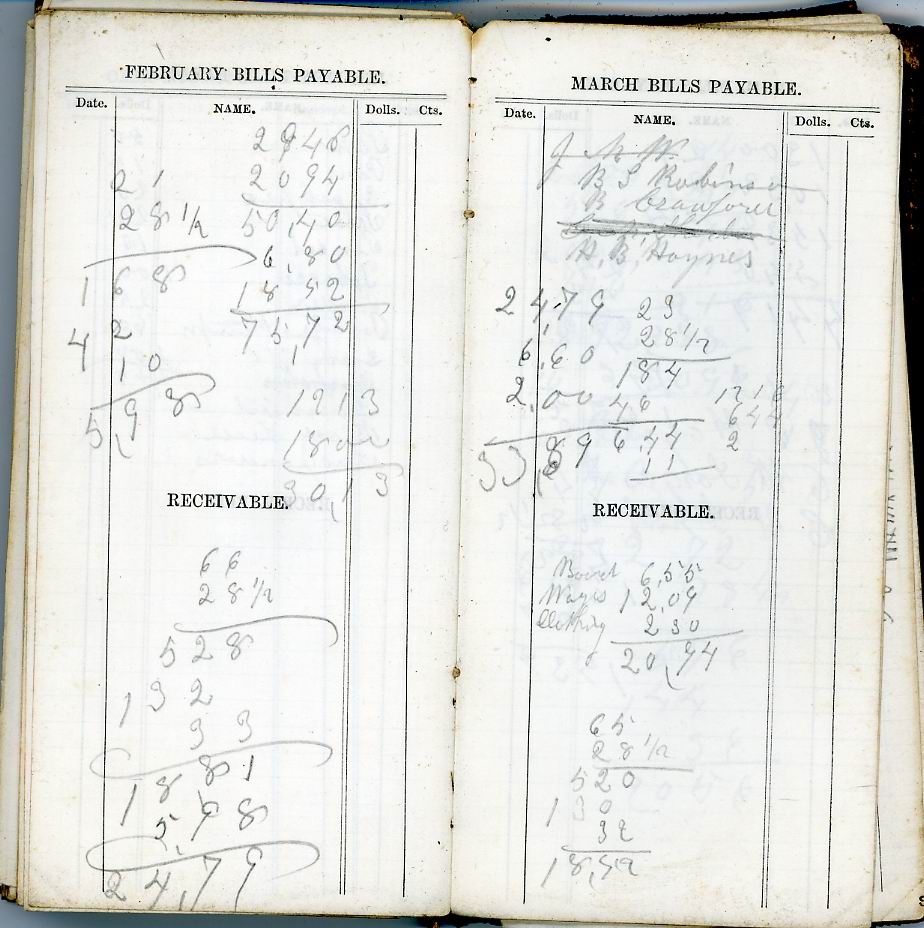 FEBRUARY BILLS PAYABLE.
Date. NAME. Dolls. Cts.
2946
21 2094
28 1/2 50,40
6,80
168 18 52
42 75,72
10
5,98 1213
1800
30,13
RECEIVABLE.
66
28 1/2
528
132
33
1881
5,98
24,79
MARCH BILLS PAYABLE.
Date. NAME. Dolls. Cts.
B S Robinson
B Crawford
H. B. Haynes
2479 23
28 1/2
6,60 184
2,00 46 1210
644
33,89 6,44 2
11
RECEIVABLE.
Board 6,55
Wages 12,09
Clothing 230
20,94
65
28 1/2
520
130
32
18,52